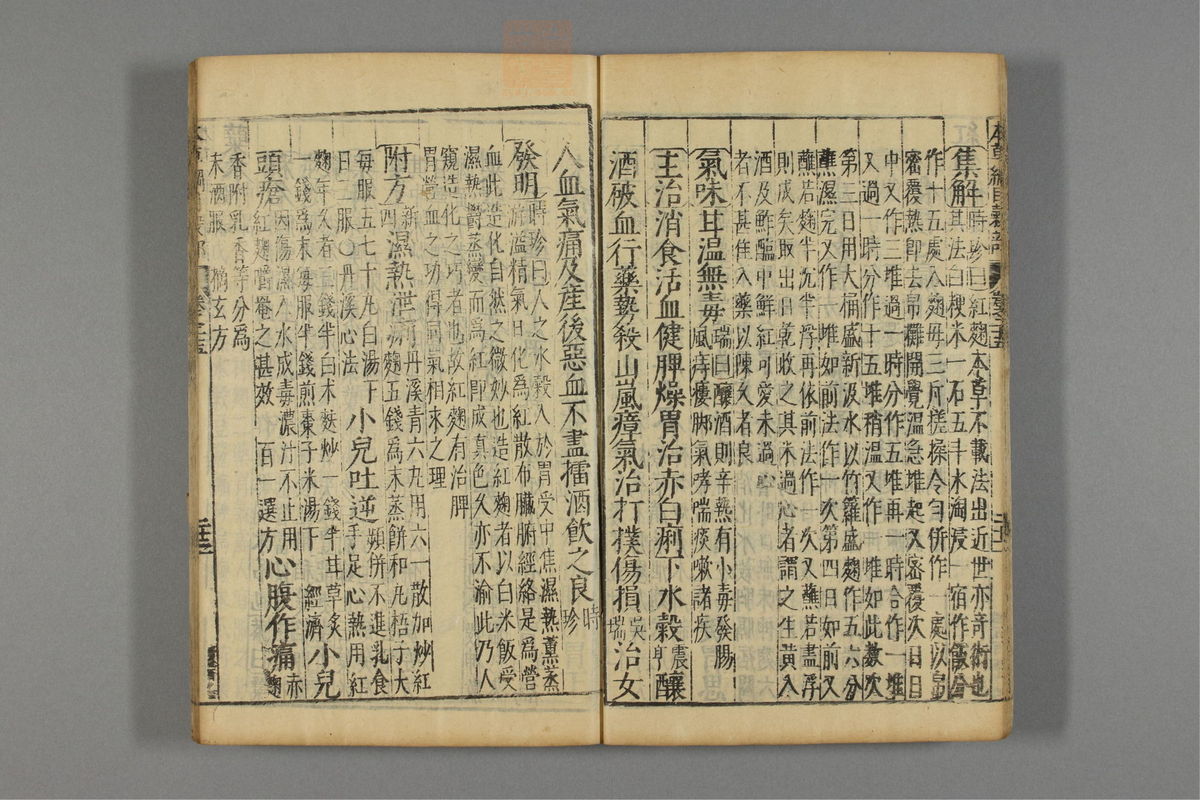 集解時珍曰紅麴本草不載法出近世亦奇術也
其法白粳米一石五斗水淘浸一宿作飯分
作十五處入麴母三斤搓揉令勻併作一處以帛
密覆熱即去帛攤開覺溫急堆起又密覆次日日
中又作三堆過一時分作五堆再一時合作一堆
又過一時分作十五堆稍溫又作一堆如此數次
第三日用大桶盛新汲水以竹籮盛麴作五六分
蘸濕完又作一堆如前法作一次第四日如前又
蘸若麴半沉半浮再依前法作一次又蘸若盡浮
則成矣取出日乾收之其米過心者謂之生黃入
酒及鮓醢中鮮紅可愛未過心
者不甚佳入藥以陳久者良
氣味甘溫無毒瑞曰釀酒則辛熱有小毒發腸
風痔瘻脚氣哮喘痰嗽諸疾
主治消食活血健脾燥胃治赤白痢下水穀震亨釀
酒破血行藥勢殺山嵐瘴氣治打撲傷損吳瑞治女
人血氣痛及產後惡血不盡擂酒飲之良時珍
發明時珍曰人之水穀入於胃受中焦濕熱薰蒸
游溢精氣日化為紅散布臟腑經絡是為營
血此造化自然之微妙也造紅麴者以白米飯受
濕熱鬱蒸變而為紅即成真色久亦不渝此乃人
窺造化之巧者也故紅麴有治脾
胃營血之功得同氣相求之理
附方新四濕熱泄痢丹溪青六丸用六一散加炒紅
麴五錢為末蒸餅和丸梧子大
每服五七十丸白湯下
日三服○丹溪心法小兒吐逆頻併不進乳食
手足心熱用紅
麴年久者三錢半白术麩炒一錢半甘草炙
一錢為末每服半錢煎棗子米湯下　經濟小兒
頭瘡因傷濕入水成毒濃汁不止用
紅麴嚼罨之甚效　百一選方心腹作痛赤麴
香附乳香等分為
末酒服　摘玄方